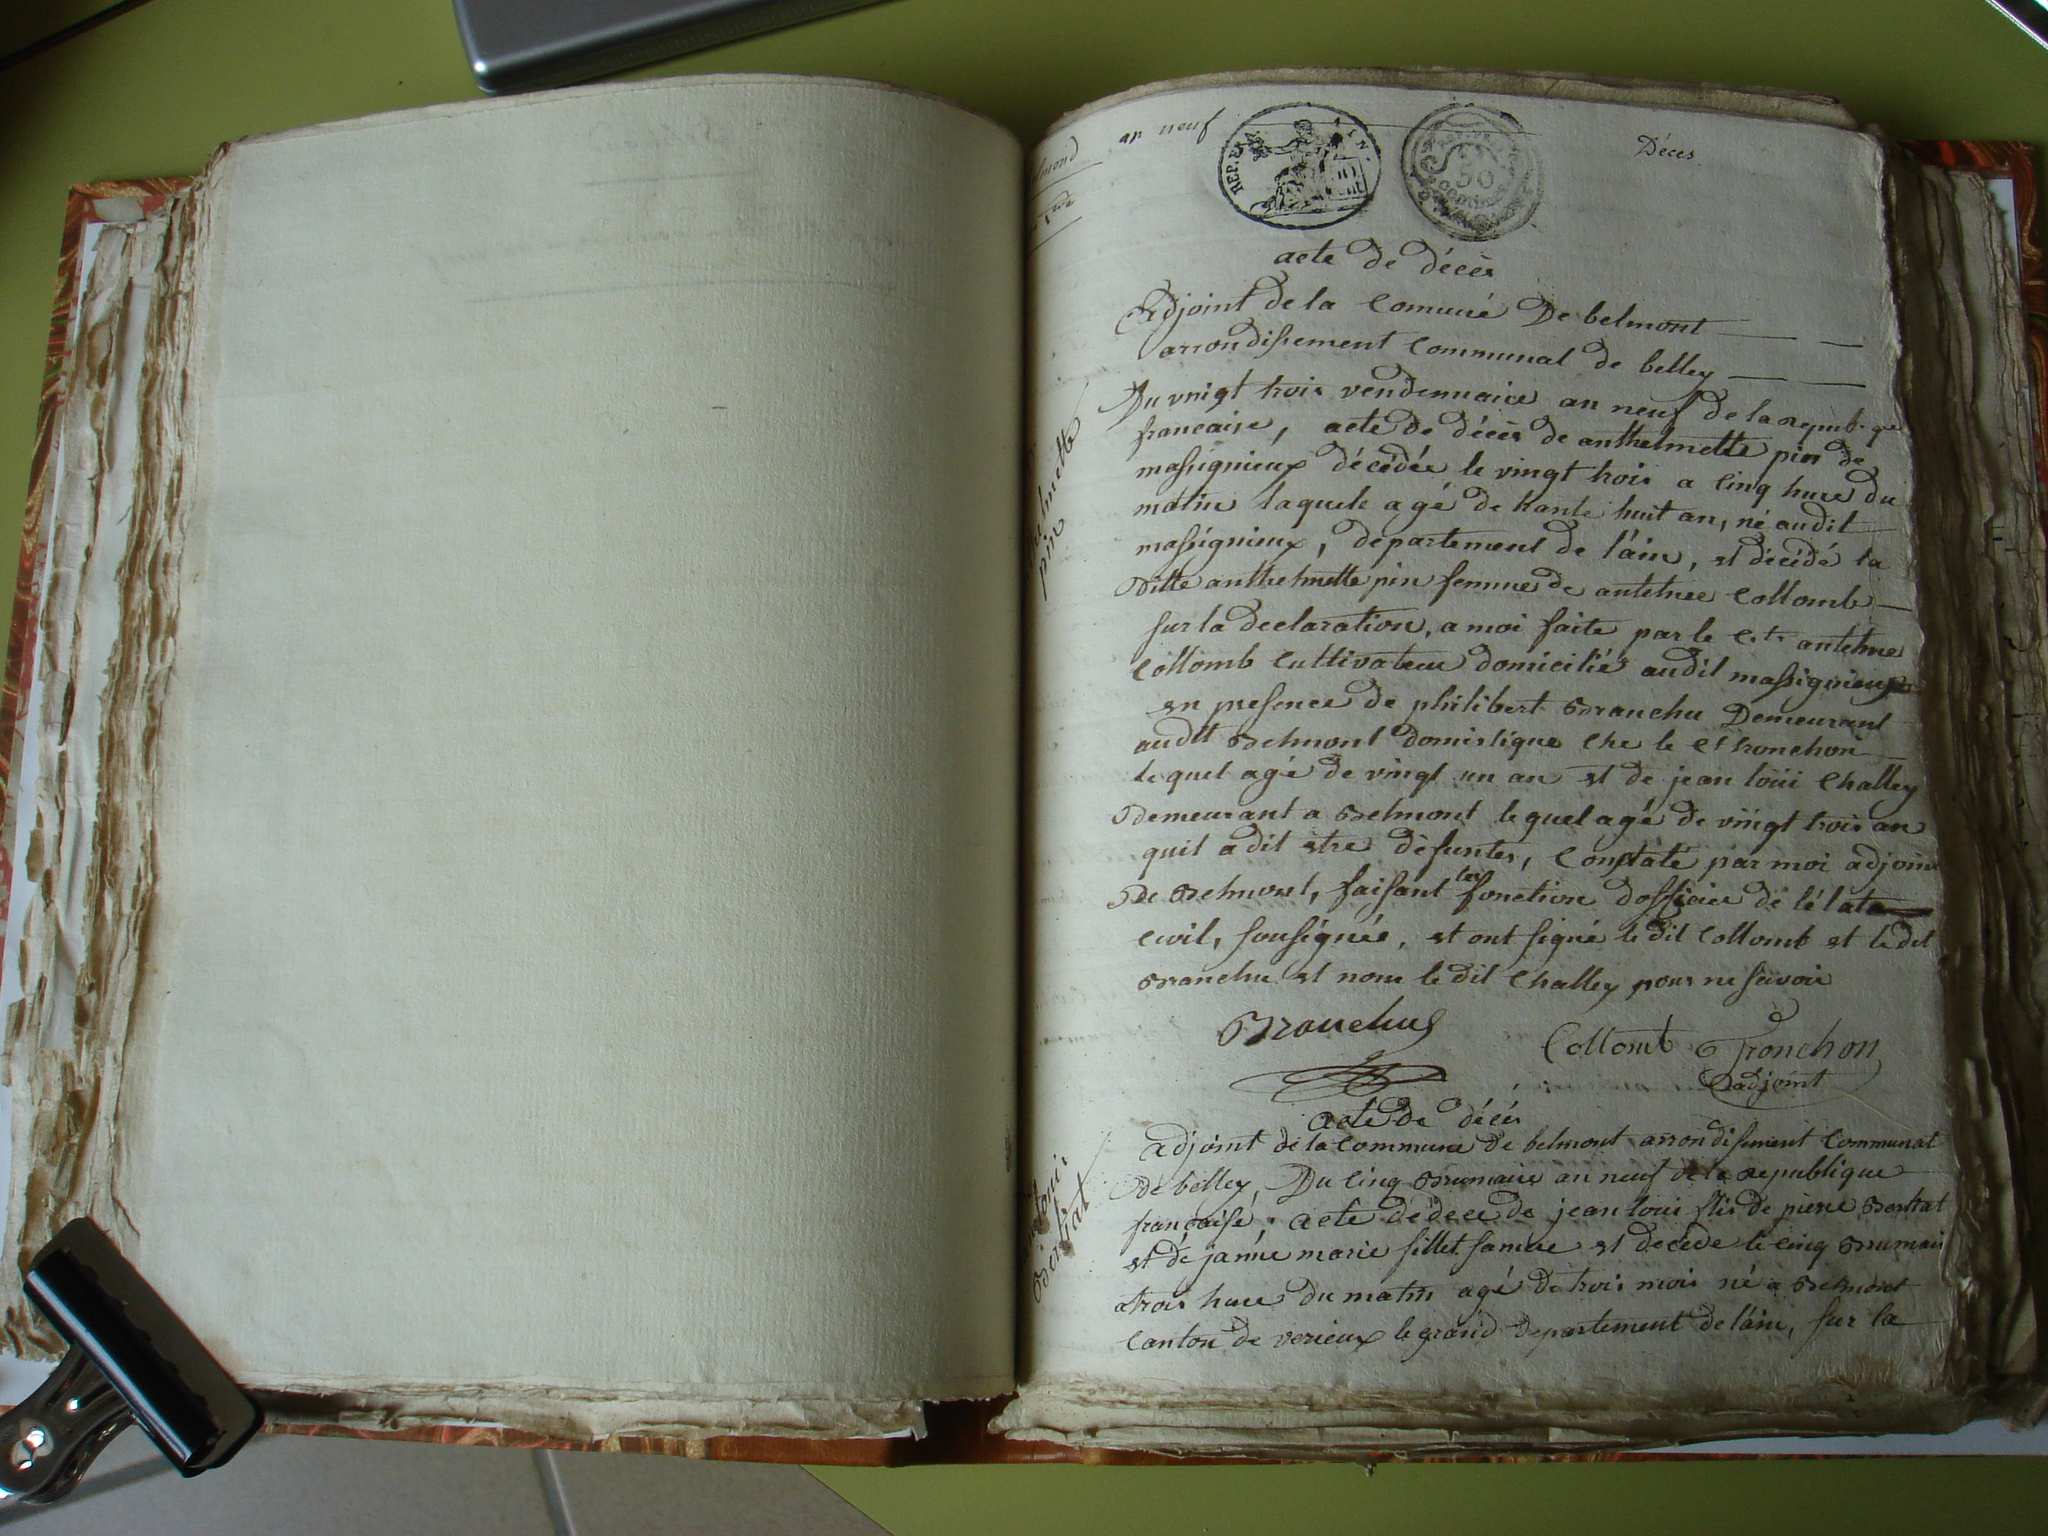 an neuf
Déces
REP. FRA
AIN.
50
acte de décès
Adjoint de la Comune De belmont
arrondissement communal de belley
Du vnigt trois vendemiaire an neuf de la repub.que
francaise, acte de décès de anthelmette pin de
massignieux décédée le vingt trois a cinq hure du
matin laquele agé de trante huit an, né audit
massignieux, departement de l'ain, et décédé la
ditte anthelmette pin femme de antelme Collomb
sur la declaration, a moi faite par le c.t antelme
Collomb cultivateur domicilié audit massignieux
en presence de philibert Branchu Demeurant
audit Belmont domestique che le ct tronchon
lequel agé de vingt un an et de jean loui Challey
Demeurant a Belmont lequel agé de viingt trois an
quil a dit etre défunte, Constaté par moi adjoint
De Belmont, faisant les fonction d'officier de l'état
civil, sousignée, et ont signé le dit Collomb et le dit
Branchu et nom le dit Challey pour ne savoir
Branchu
Collomb Tronchon
adjoint
acte De décés
adjoint de la commune De belmont arrondisement communal
De belley, Du cinq Brumaire an neuf de la republique
francaise, acte de dece de jean loui fils de pierre Bertrat
et de janne marie fillet famme et decede le cinq Brumair
a trois hure du matin agé de trois mois né a Belmont
canton de verieux le grand departement de l'ain, sur la
anthelmette
pin